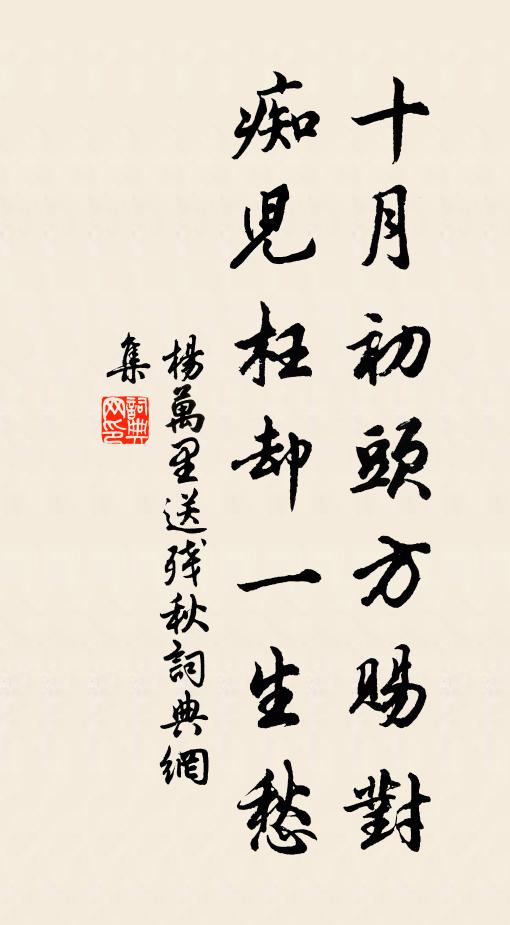 十月初頭方賜對
痴兒枉却一生愁
楊萬里送残秋詞典網
集
詞典
网印